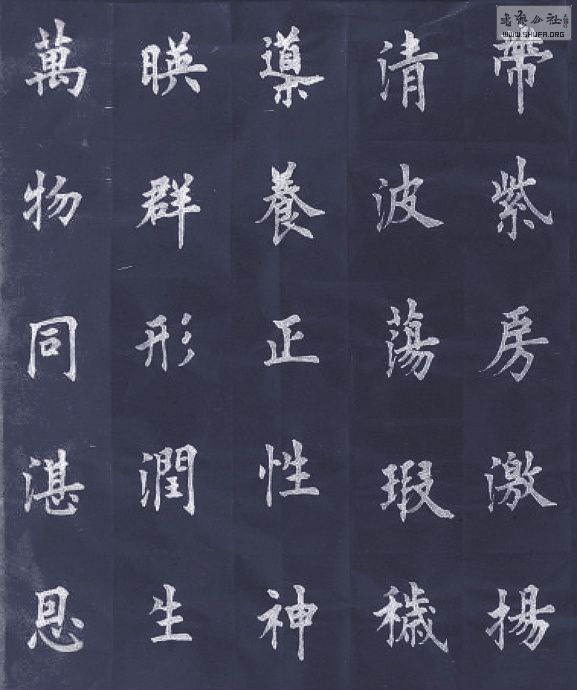 帶紫房激揚
清波蕩瑕穢
導養正性神
暎群形潤生
萬物同湛恩
WWW.SHUFA.ORG